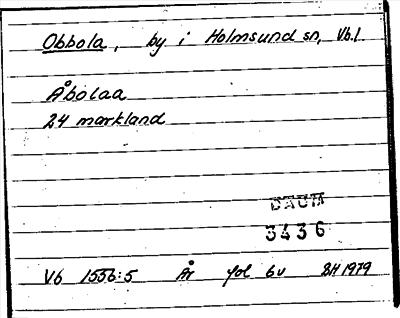 Obbola, by i Holmsund sn, Vb.l.
Åbolaa
24 markland
DAUM
3436
Vb 1556:5 År fol 6v BH 1979